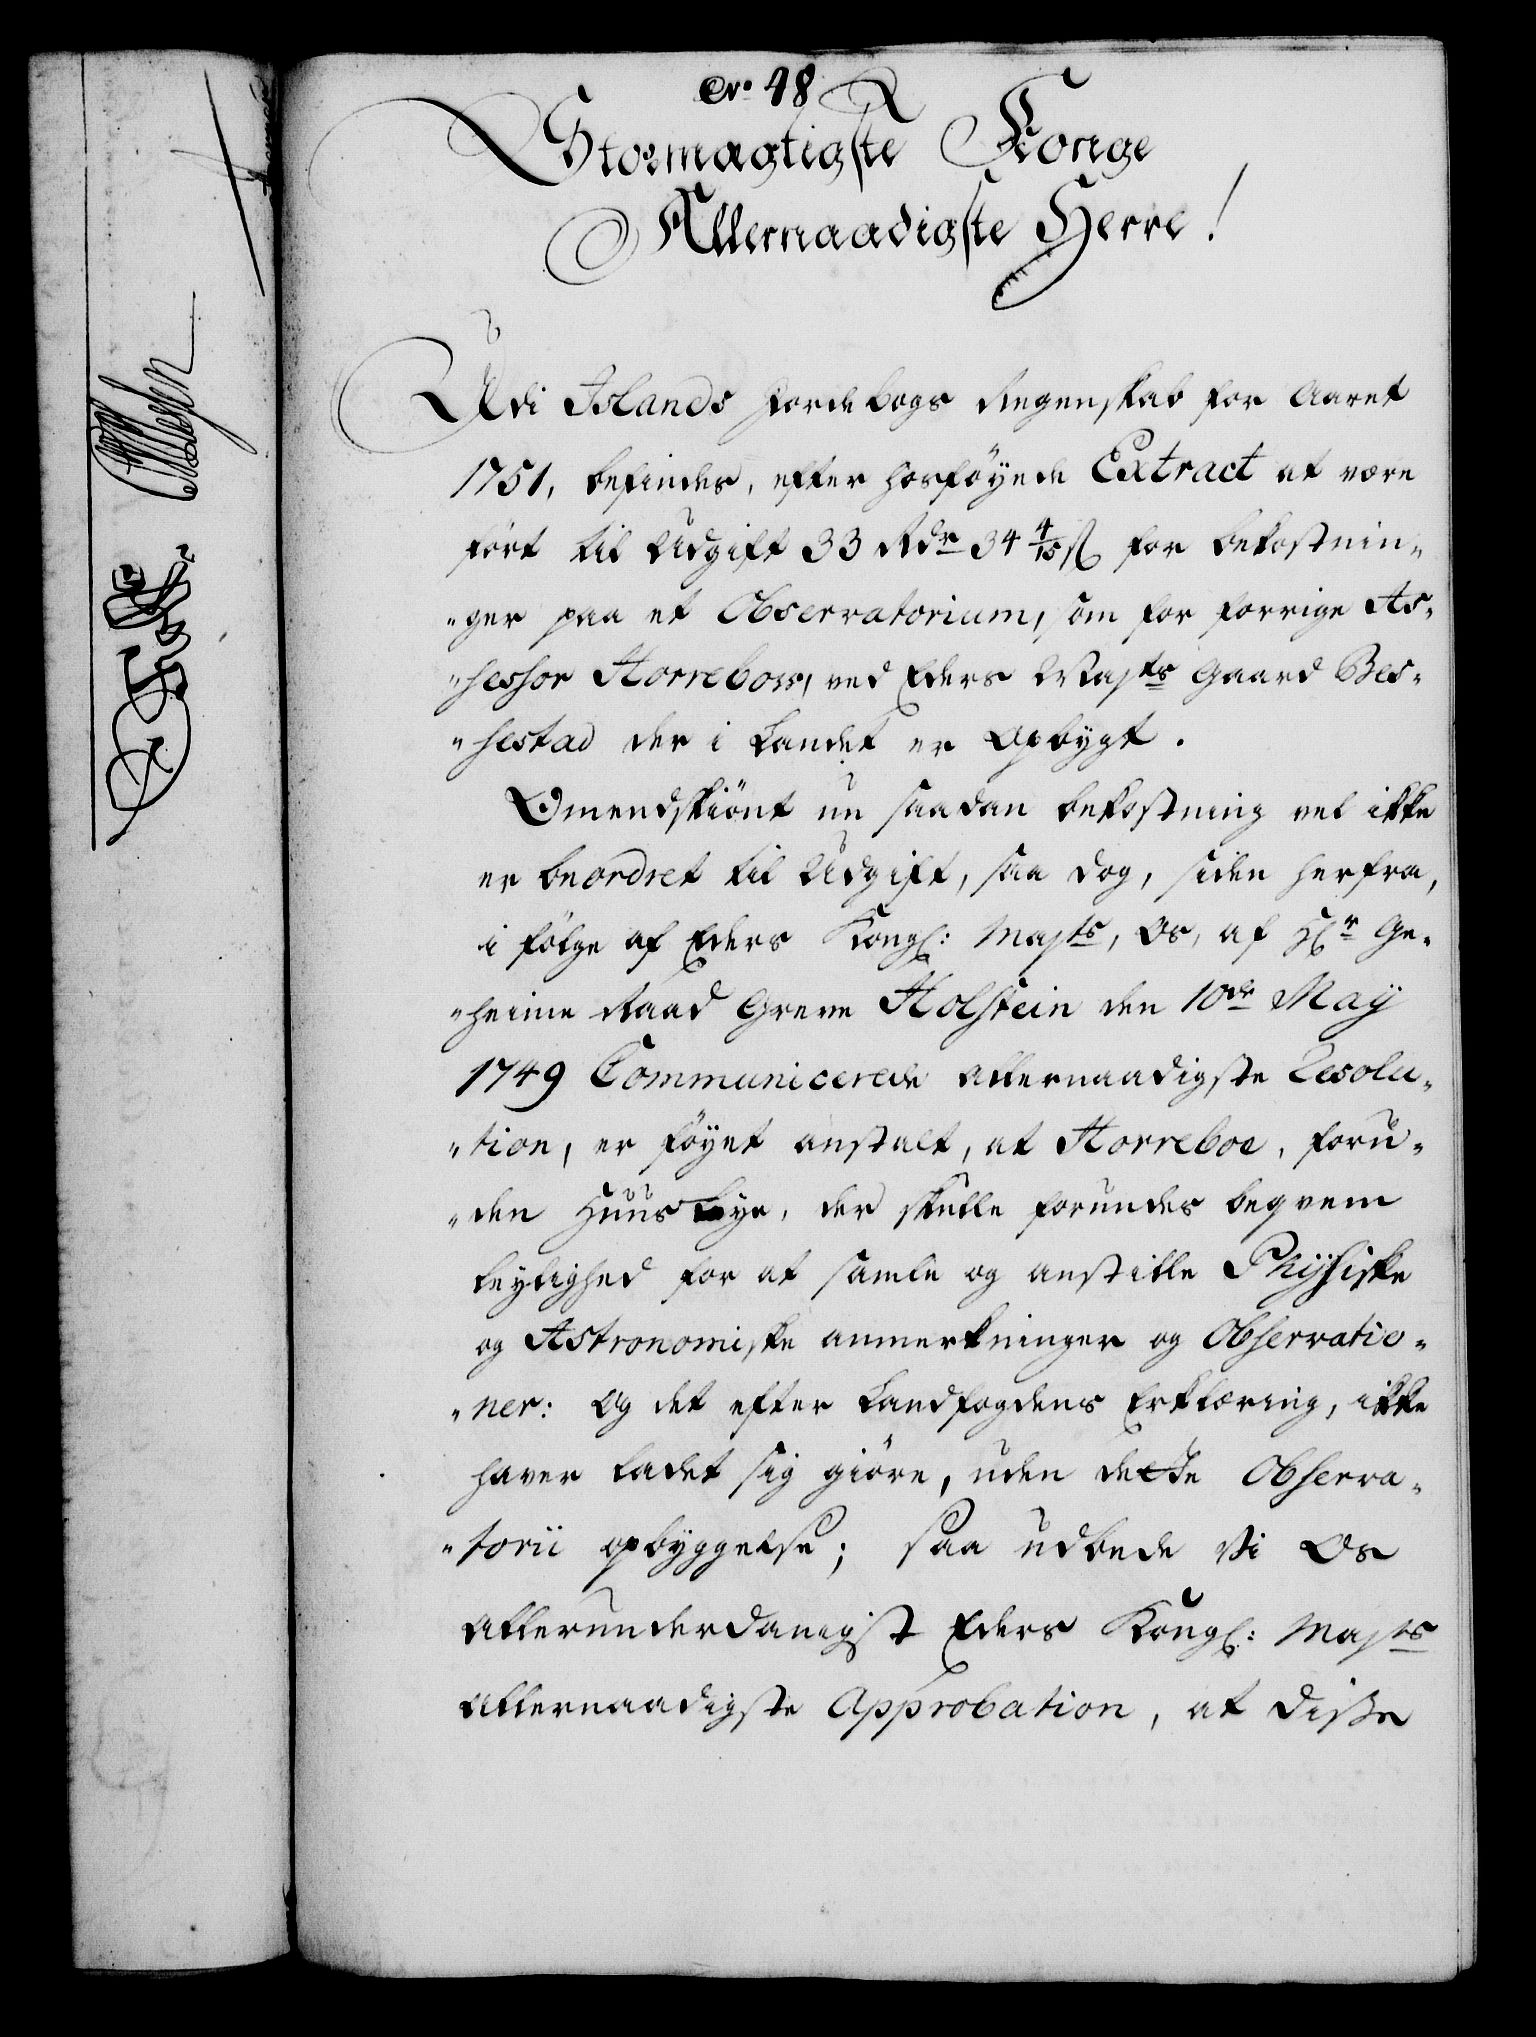 No 48
Stormægtigste Konge
Allernaadigste Herre!
Udi Islands Jordebogs Regenskab for Aaret
1751, befindes, efter hosföyede Extract at være
fört til Udgift 33 Rdr 34 4/15 ß for bekostnin„
„ger paa et Observatorium, som for forrige As„
„sessor Horrebow, ved Eders Mayts Gaard Bes„
„sestad der i Landet er Opbygt.
Omendskiönt nu saadan bekostning vel ikke
er beordret til Udgift, saa dog, siden herfra,
i fölge af Eders Kongl: Mayts, Os, af Hr Ge„
„heime Raad Greve Holstein den 10de May
1749 Communicerede allernaadigste Resolu„
„tion, er föyet anstalt, at Horreboe, foru„
„den Huus Lye, der skulle forundes beqvem
leylighed for at samle og anstille Physiske
og Astronomiske anmerkninger og Observatio„
„ner: Og det efter Landfogdens Erklæring, ikke
haver ladet sig giöre, uden dette Observa„
„torii opbyggelse; saa udbede Vi Os
allerunderdanigst Eders Kongl: Mayts
allernaadigste Approbation, at disse